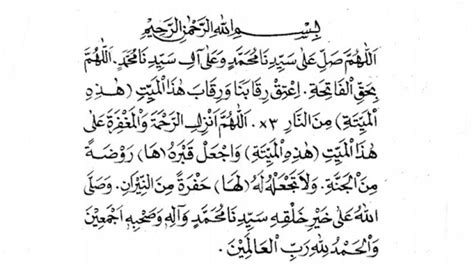 بِسْمِ اللهِ الرَّحْمٰنِ الرَّحِيْمِ
اَللّٰهُمَّ صَلِّ عَلٰى سَيِّدِنَا مُحَمَّدٍ وَعَلٰى آلِ سَيِّدِنَا مُحَمَّدٍ. اَللّٰهُمَّ
بِحَقِّ الْفَاتِحَةِ. اِعْتِقْ رِقَابَنَا وَرِقَابَ هٰذَا الْمَيِّتِ (هٰذِهِ
الْمَيِّتَةِ) مِنَ النَّارِ ×٣. اَللّٰهُمَّ انْزِلِ الرَّحْمَةَ وَالْمَغْفِرَةَ عَلٰى
هٰذَا الْمَيِّتِ (هٰذِهِ الْمَيِّتَةِ) وَاجْعَلْ قَبْرَهُ (هَا) رَوْضَةً
مِنَ الْجَنَّةِ. وَلَا تَجْعَلْهُ لَهُ (لَهَا) حُفْرَةً مِنَ النِّيْرَانِ. وَصَلَّى
اللهُ عَلٰى خَيْرِ خَلْقِهِ سَيِّدِنَا مُحَمَّدٍ وَآلِهِ وَصَحْبِهِ اَجْمَعِيْنَ
وَالْحَمْدُ لِلّٰهِ رَبِّ الْعَالَمِيْنَ.